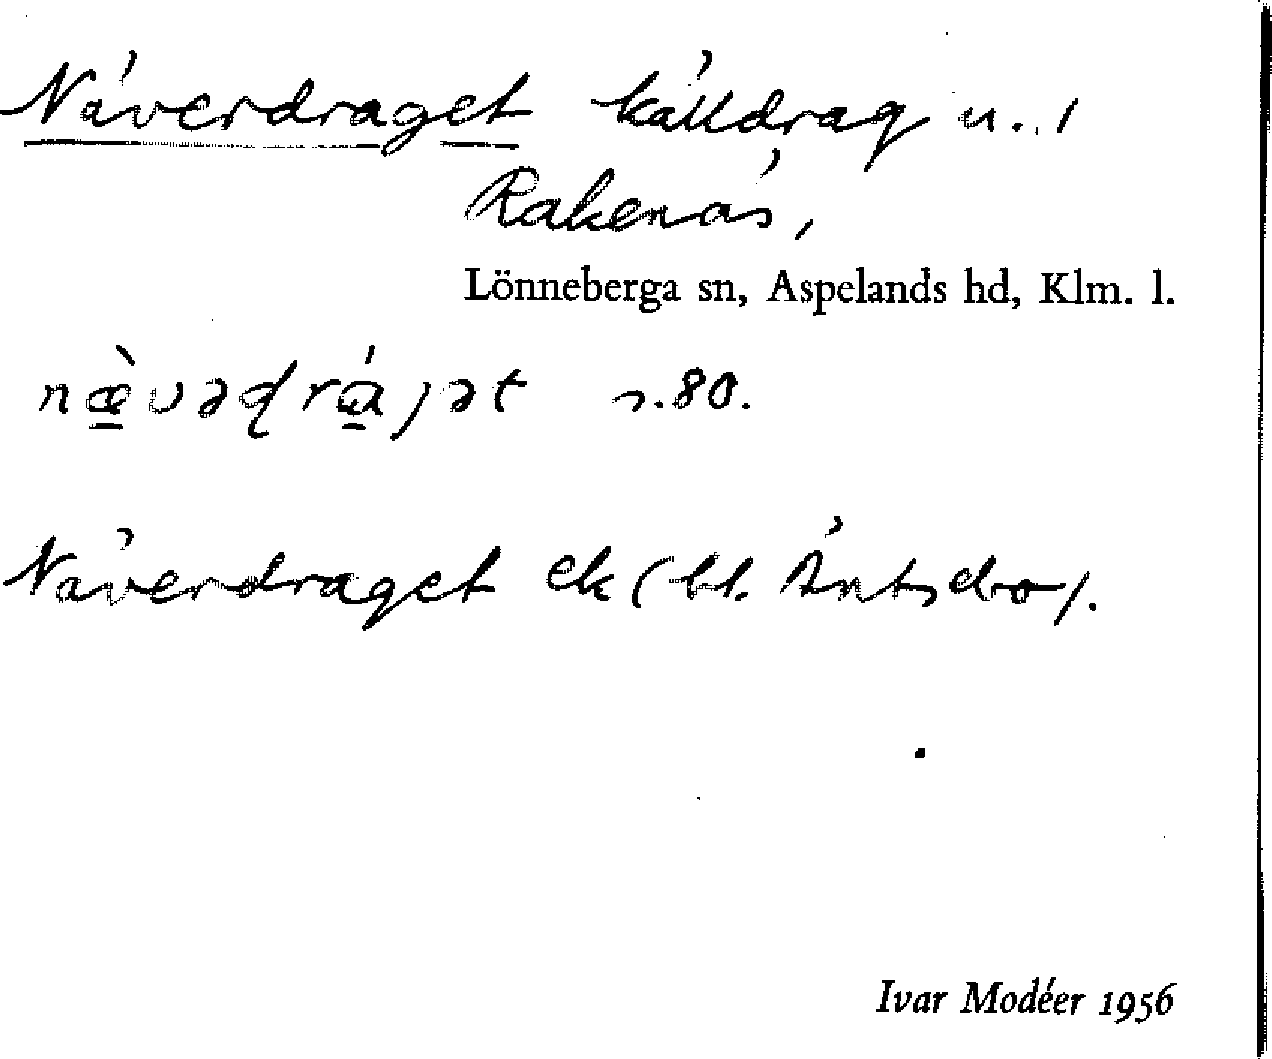 Näverdraget källdrag u. 1
Rakenäs,
Lönneberga sn, Aspelands hd, Klm. l.
s. 80.
Näverdraget ek (bl.
Ivar Modéer 1956